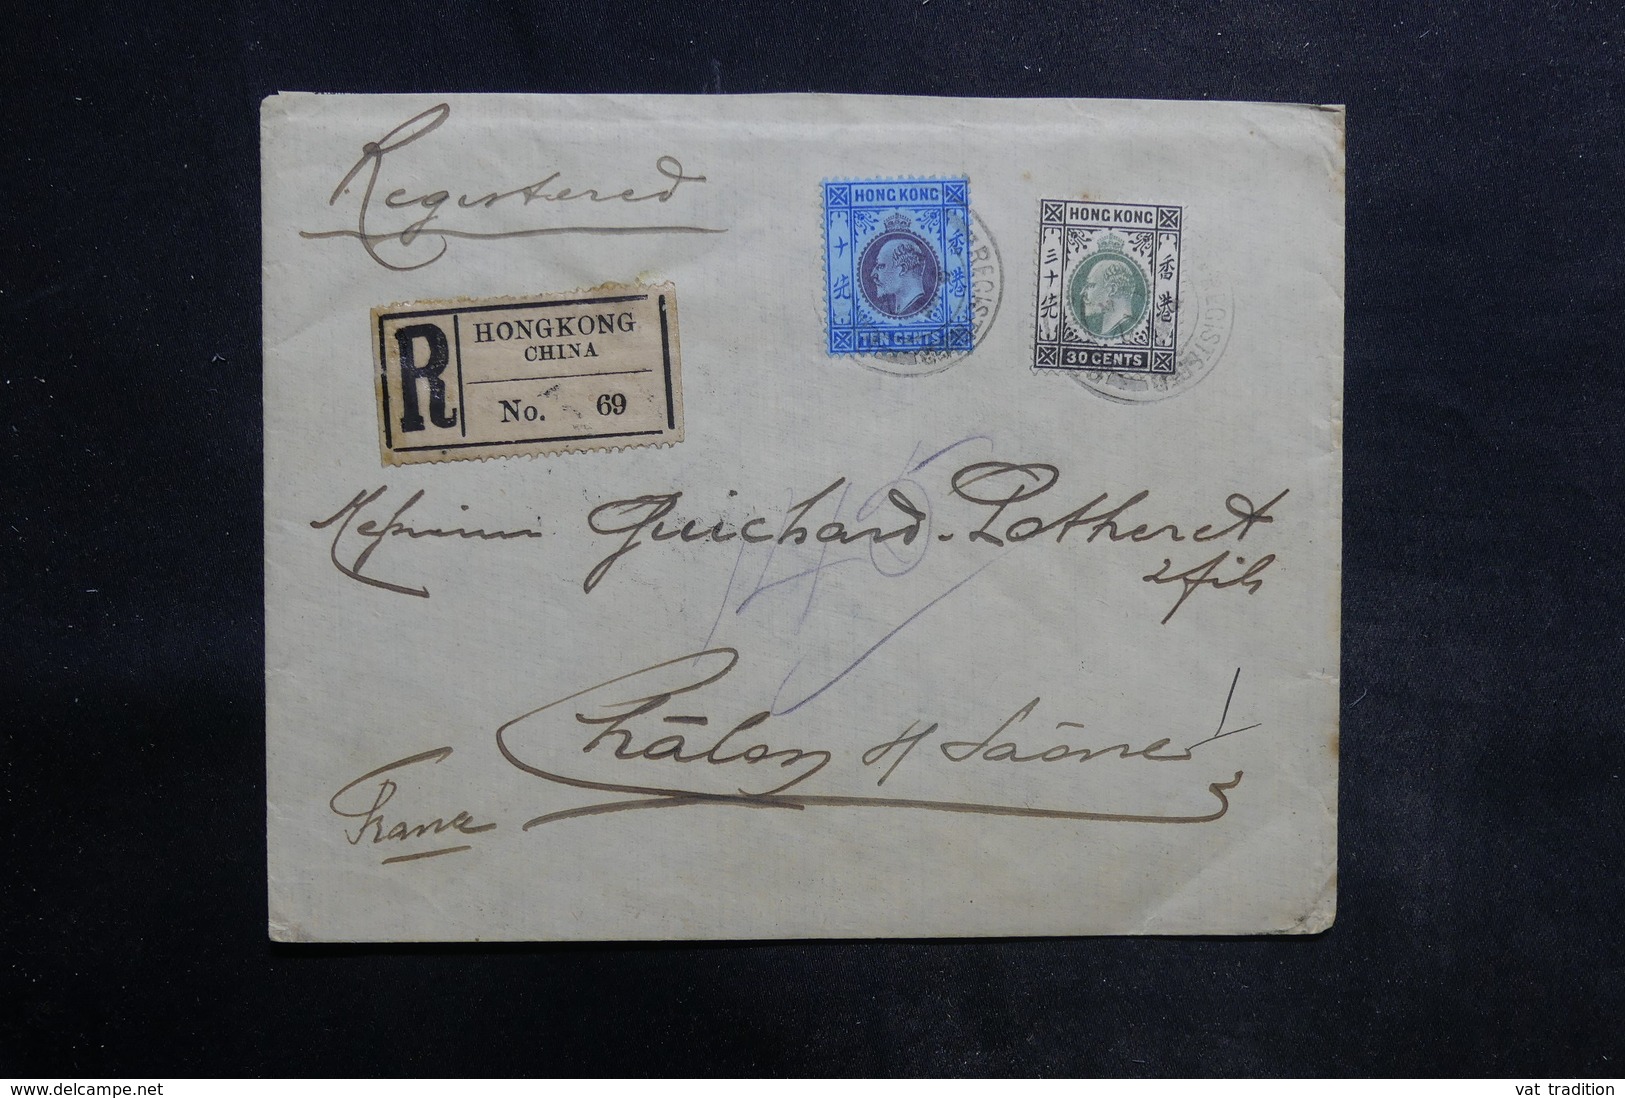 Registered
HONG KONG
十先
香港
TEN CENTS
HONG KONG
三十先
香港
30 CENTS
REGISTERED
R
HONGKONG
CHINA
No. 69
145
Messieurs Guichard-Potheret
& fils
Châlon s/ Saône
France
www.delcampe.net
vat tradition